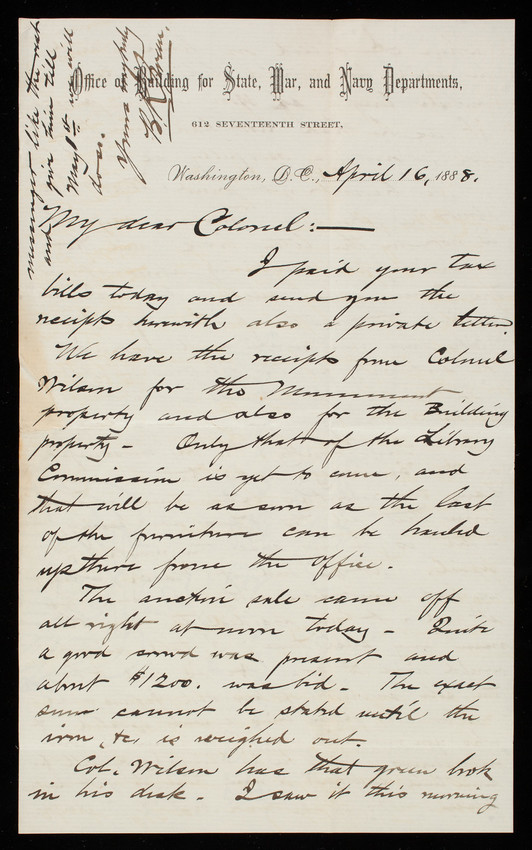 Office of Building for State, War, and Navy Departments,
612 SEVENTEENTH STREET,
Washington, D.C., April 16, 1888.
My dear Colonel:—
I paid your tax
bills today and send you the
receipts herewith also a private letter.
We have the receipts from Colonel
Wilson for the Monument
property and also for the Building
property — Only that of the Library
Commission is yet to come, and
that will be as soon as the last
of the furniture can be hauled
up there from the office.
The auction sale came off
all right at noon today — Quite
a good crowd was present and
about $1200. was bid — The exact
sum cannot be stated until the
iron, &c, is weighed out.
Col. Wilson has that green book
in his desk — I saw it this morning
messenger like the rest
and give him till
May 1st and will
Yours very truly
B. R. Green